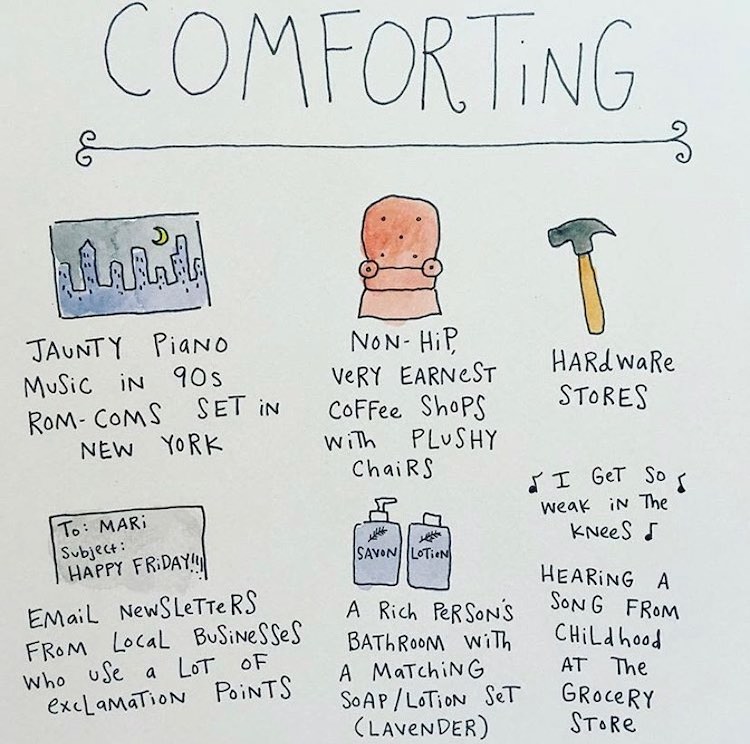 COMFORTiNG
JAUNTY PiANO
MUSiC iN 90s
ROM-COMS SET iN
NEW YORK
NON-HiP,
VERY EARNEST
COFFEE ShOPS
WiTh PLUSHY
ChaiRS
HARdwaRe
STORES
To: MARi
Subject:
HAPPY FRiDAY!!!
EMaiL NEWSLETTERS
FROM LOCaL BUSiNESSES
Who USe a LOT OF
excLamaTiON POiNTS
SAVON
LOTiON
A Rich PERSON'S
BATHROOM WiTH
A MATCHiNG
SOAP/LOTiON SeT
(LAVENDER)
♪ I GeT SO ♪
weak iN The
KNeeS ♪
HEARiNG A
SONG FROM
CHiLdhood
AT The
GROCeRY
STORe